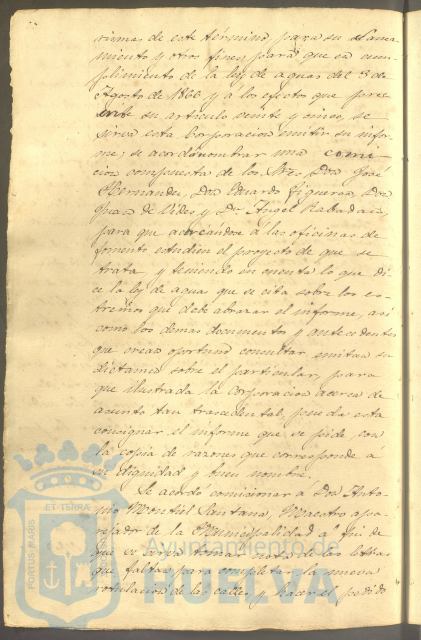 risma de este término para su Sanea
miento y otros fines, para que en cum
plimiento de la ley de aguas del 3 de
Agosto de 1866 y á los efectos que pres
cribe su articulo veinte y cinco, se
sirva esta Corporacion emitir su infor
me; se acordó nombrar una comi
cion compuesta de los Srs. Don José
Hernandez, Don Eduardo Figueroa, Don
Juan de Vides, y Dn. Angel Rabadan,
para que acercandose á las oficinas de
fomento estudien el proyecto de que se
trata, y teniendo en cuenta lo que di
ce la ley de agua que se cita sobre los es
tremos que debe abrazar el informe, asi
como los demas documentos y antecedentes
que crean oportuno consultar, emitan su
dictamen sobre el particular, para
que ilustrada la Corporacion acerca de
asunto tan trascendental, pueda esta
consignar el informe que se pide con
la copia de razones que corresponde á
su dignidad y buen nombre.
Se acordó comicionar á Don Anto
nio Montiel Santana, Maestro apa
rejador de la Municipalidad á fin de
que se sirva tomar nota de las letras
que faltan para completar la nueva
rotulacion de las calles, y hacer el pedido
PORTUS MARIS
ET TERRÆ
Ayuntamiento de
HUELVA